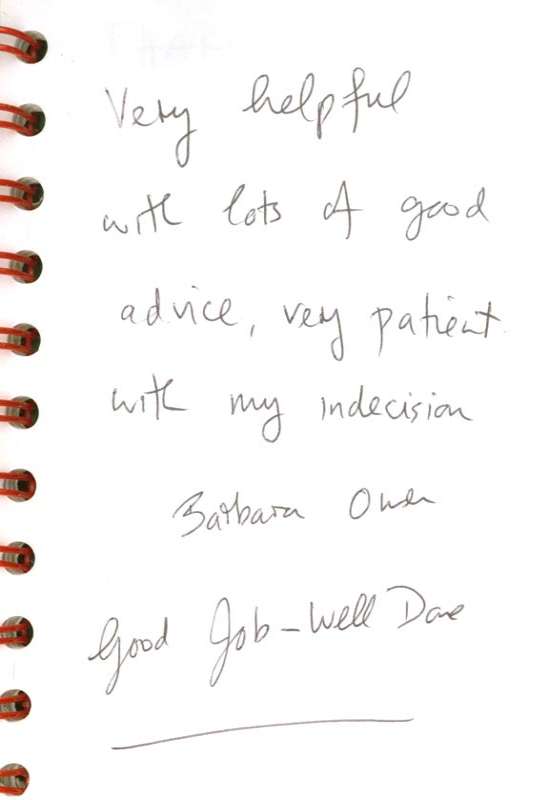 Very helpful
with lots of good
advice, very patient
with my indecision
Barbara Owen
Good Job - Well Done